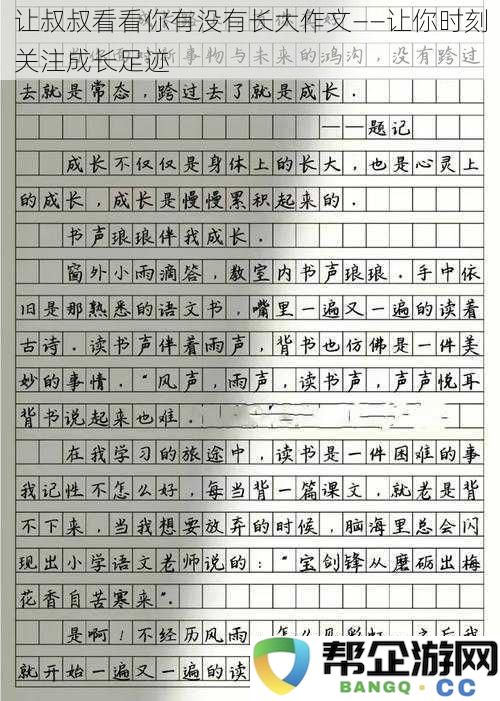 让叔叔看看你有没有长大作文——让你时刻
关注成长足迹
新事物与未来的鸿沟，没有跨过
去就是常态，跨过去了就是成长．
——题记
成长不仅仅是身体上的长大，也是心灵上
的成长，成长是慢慢累积起来的．
书声琅琅伴我成长．
窗外小雨滴答，教室内书声琅琅．手中依
旧是那熟悉的语文书，嘴里一遍又一遍的读着
古诗．读书声伴着雨声，背书也仿佛是一件美
妙的事情．“风声，雨声，读书声，声声悦耳
背书说起来也难．
在我学习的旅途中，读书是一件困难的事
我记性不怎么好，每当背一篇课文，就老是背
不下来，当我想要放弃的时候，脑海里总会闪
现出小学语文老师说的：“宝剑锋从磨砺出梅
花香自苦寒来”．
是啊！不经历风雨
就开始一遍又一遍的读
帮企游网
BANGQ·CC